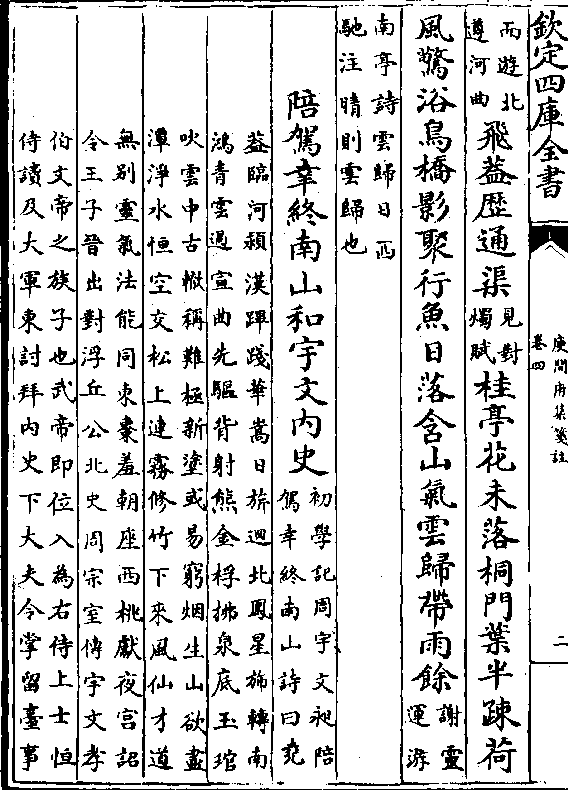 欽定四庫全書
庾開府集箋註
卷四
二
而遊北
遵河曲
飛葢歴通渠
見對
燭賦
桂亭花未落桐門葉半疎荷
風驚浴鳥橋影聚行魚日落含山氣雲歸帶雨餘
謝靈
運游
南亭詩雲歸日西
馳注晴則雲歸也
陪駕幸終南山和宇文内史
初學記周宇文昶陪
駕幸終南山詩曰堯
葢臨河頴漢蹕踐華嵩日旂迴北鳳星旆轉南
鴻青雲過宣曲先驅背射熊金桴拂泉底玉琯
吹雲中古轍稱難極新塗或易窮烟生山欲盡
潭淨水恒空交松上連霧修竹下來風仙才道
無别靈氣法能同東棗羞朝座西桃獻夜宫詔
令王子晉出對浮丘公北史周宗室傳宇文孝
伯文帝之族子也武帝即位入為右侍上士恒
侍讀及大軍東討拜内史下大夫令掌留臺事